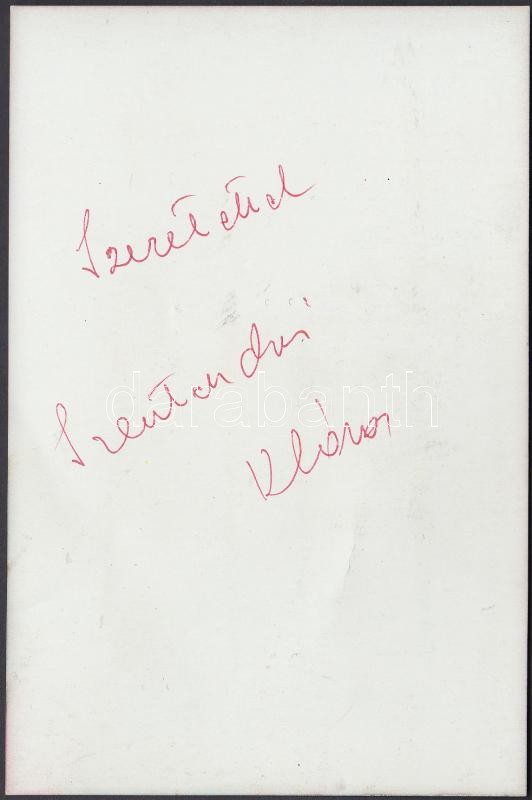 Szeretettel
darabanth
Szentendrei
Klára